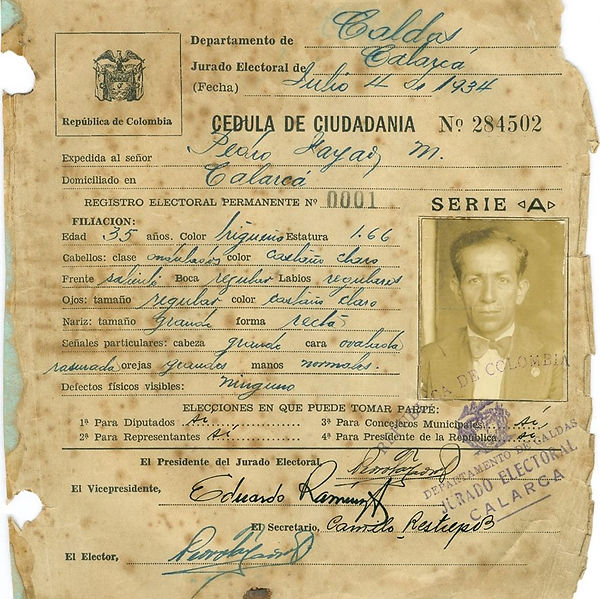 Departamento de Caldas
Jurado Electoral de Calarcá
(Fecha) Julio 4 de 1934
República de Colombia
CEDULA DE CIUDADANIA Nº 284502
Expedida al señor Pedro M.
Domiciliado en Calarcá
REGISTRO ELECTORAL PERMANENTE Nº 0001
SERIE A
FILIACION:
Edad 35 años. Color trigueño Estatura 1.66
Cabellos: clase ondulados color castaño claro
Frente saliente Boca regular Labios regulares
Ojos: tamaño regular color castaño claro
Nariz: tamaño grande forma recta
Señales particulares: cabeza grande cara ovalada
rasurada orejas grandes manos normales.
Defectos físicos visibles: ninguno
ELECCIONES EN QUE PUEDE TOMAR PARTE:
1ª Para Diputados si 3ª Para Concejeros Municipales si
2ª Para Representantes si 4ª Para Presidente de la República si
El Presidente del Jurado Electoral,
El Vicepresidente, Eduardo Ramírez
El Secretario, Camilo Restrepo B
El Elector,
REPUBLICA DE COLOMBIA
DEPARTAMENTO DE CALDAS
JURADO ELECTORAL
CALARCA